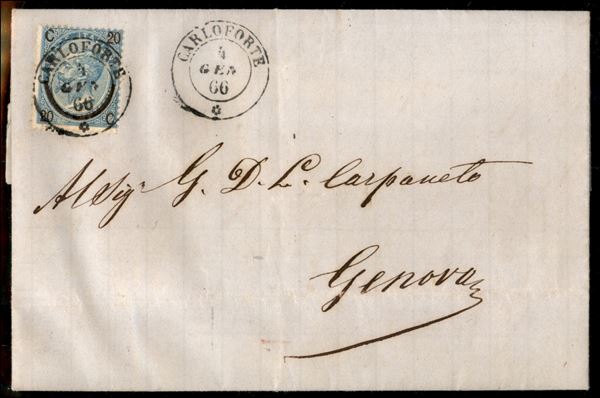 C 20
CARLOFORTE
4
GEN
66
20 C
CARLOFORTE
4
GEN
66
Al Sigr G. D. L. Carpaneto
Genova